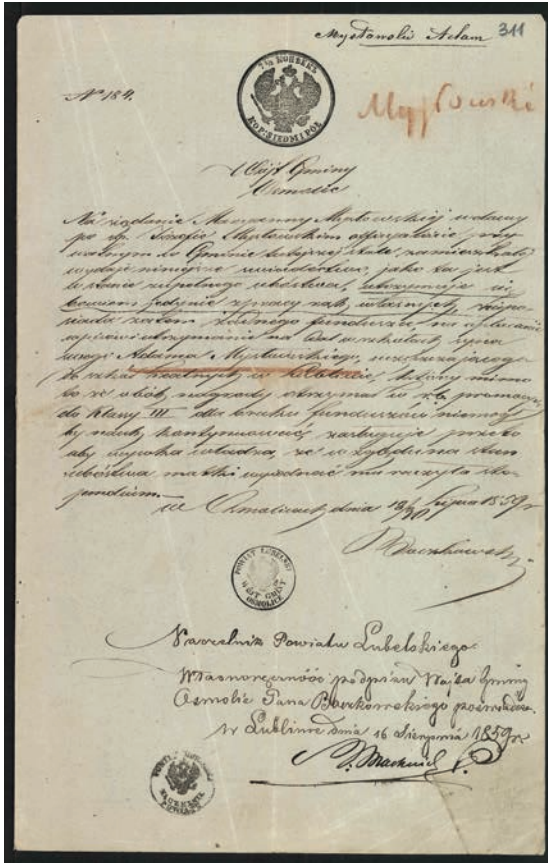 Mysłowski Adam 311
7½ KOPIEK
KOP: SIEDM I PÓŁ
N 184.
Mysłowski
Wójt Gminy
Osmolic
Na żądanie Maryanny Mysłowskiej wdowy
po śp. Józefie Mysłowskim officyaliście pry
watnym w Gminie tutejszej stale zamieszkałej
wydaje niniejsze świadectwo, jako ta jest
w stanie zupełnego ubóstwa, utrzymuje się
bowiem jedynie z pracy rąk własnych, nie po
siada zatem żadnego funduszu na opłacenie
wpisów i utrzymanie na dal w szkołach syna
swego Adama Mysłowskiego, uczęszczającego
do szkół realnych w Lublinie, który mimo
to że obok nagrody otrzymał w r. b. promocyą
do klassy III dla braku funduszów niemógł
by nauk kontynuować, zasługuje przeto
aby wysoka władza, ze względu na stan
ubóstwa matki wyjednać mu raczyła sty
pendium.—
w Osmolicach dnia Lipca 1859 r
Baczkowski
POWIAT LUBELSKI
WÓJT GMINY
OSMOLICE
Naczelnik Powiatu Lubelskiego
Własnoręczność podpisu Wójta Gminy
Osmolic Pana Baczkowskiego poświadcza.
w Lublinie dnia 16 Sierpnia 1859 r
NACZELNIK
POWIATU